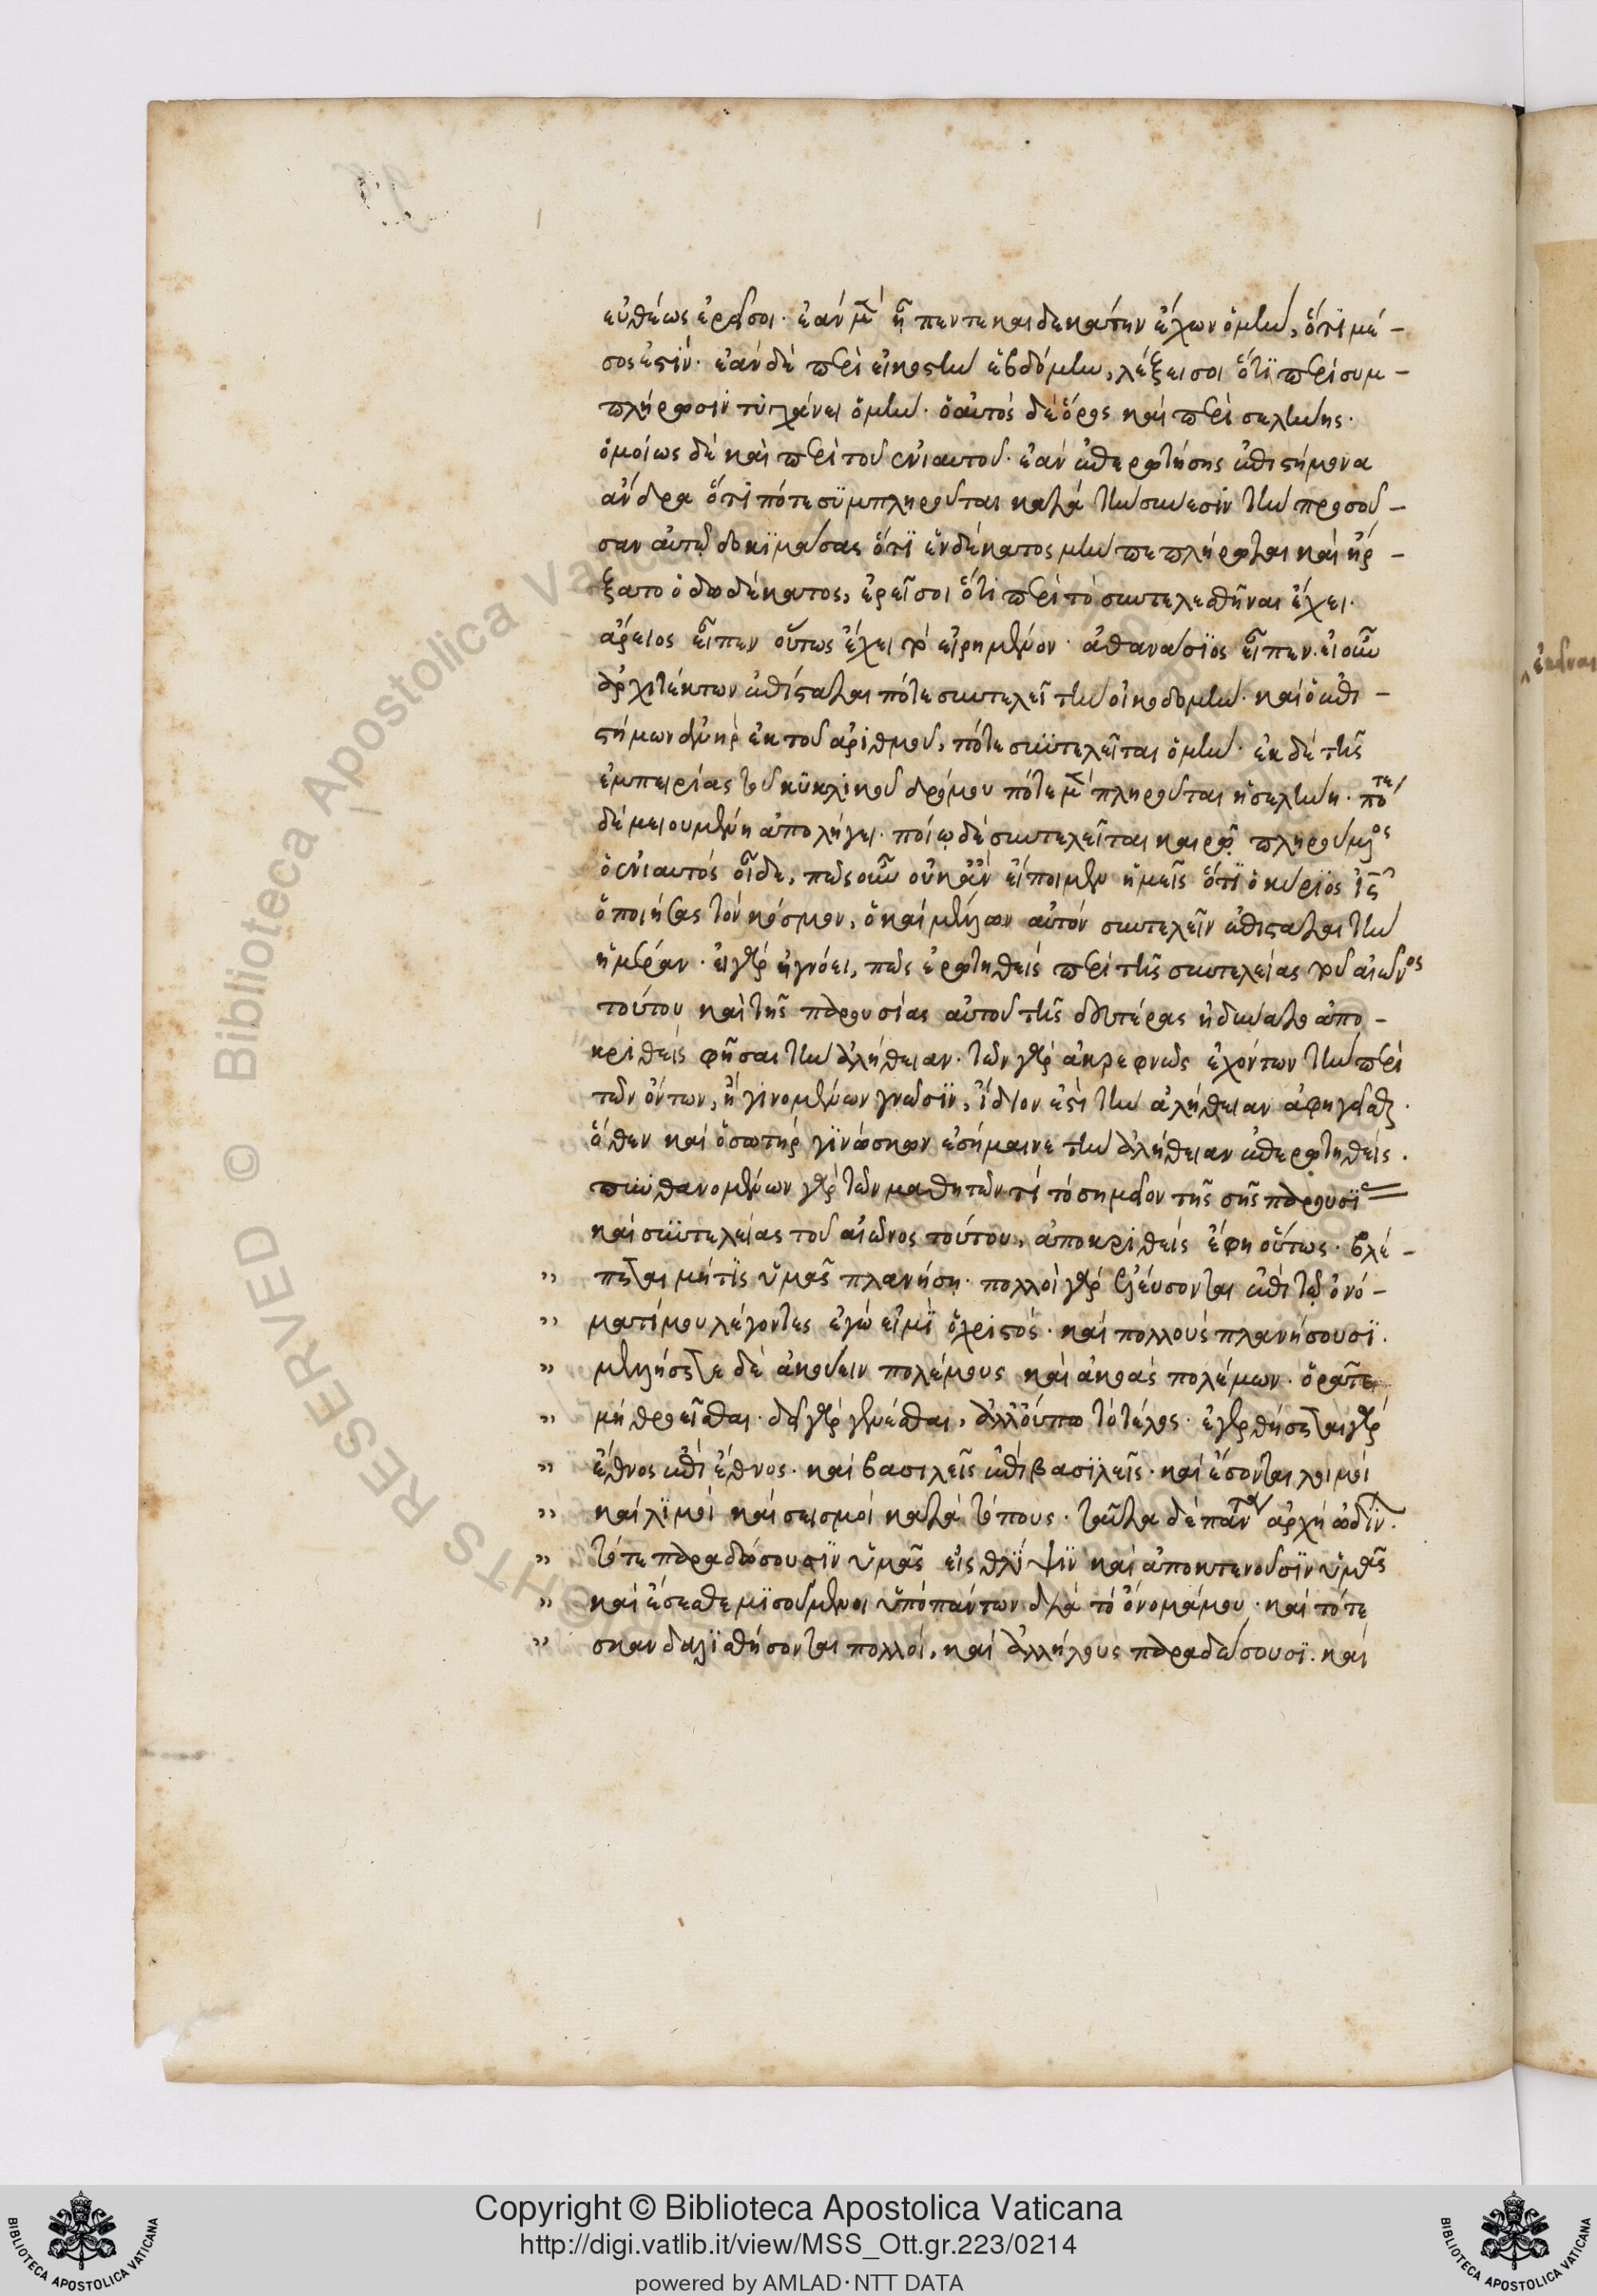 εὐθέως ἐρεῖ σοι· ἐὰν μὲν ᾖ πεντεκαιδεκάτην ἔχων ὁ μὴν, ὅτι μέ-
σος ἐστίν· ἐὰν δὲ περὶ εἰκοστὴν ἑβδόμην, λέξει σοι ὅτι περὶ συμ-
πλήρωσιν τυγχάνει ὁ μὴν· ὁ αὐτὸς δὲ ὅρος καὶ περὶ σελήνης·
ὁμοίως δὲ καὶ περὶ τοῦ ἐνιαυτοῦ· ἐὰν ἐπερωτήσῃς ἐπιστήμονα
ἄνδρα ὅτι πότε συμπληροῦται κατὰ τὴν σύνεσιν τὴν προσοῦ-
σαν αὐτῷ δοκιμάσας ὅτι ἑνδέκατος μὴν πεπλήρωται καὶ ἤρ-
ξατο ὁ δωδέκατος, ἐρεῖ σοι ὅτι περὶ τὸ συντελεσθῆναι ἔχει·
ἄρειος εἶπεν οὕτως ἔχει τὸ εἰρημένον· ἀθανάσιος εἶπεν· εἰ οὖν
ἀρχιτέκτων ἐπίσταται πότε συντελεῖ τὴν οἰκοδομὴν· καὶ ὁ ἐπι-
στήμων ἀνὴρ ἐκ τοῦ ἀριθμοῦ, πότε συντελεῖται ὁ μὴν· ἐκ δὲ τῆς
ἐμπειρίας τοῦ κυκλικοῦ δρόμου πότε μὲν πληροῦται ἡ σελήνη· πότε
δὲ μειουμένη ἀπολήγει· ποίῳ δὲ συντελεῖται καιρῷ πληρούμενος
ὁ ἐνιαυτὸς οἶδε, πῶς οὖν οὐκ ἂν εἴποιμεν ἡμεῖς ὅτι ὁ κύριος ἰς
ὁ ποιήσας τὸν κόσμον, ὁ καὶ μέλλων αὐτὸν συντελεῖν ἐπίσταται τὴν
ἡμέραν· εἰ γὰρ ἠγνόει, πῶς ἐρωτηθεὶς περὶ τῆς συντελείας τοῦ αἰῶνος
τούτου καὶ τῆς παρουσίας αὐτοῦ τῆς δευτέρας ἠδύνατο ἀπο-
κριθεὶς φῆσαι τὴν ἀλήθειαν· τῶν γὰρ ἀκρεφνῶς ἐχόντων τὴν περὶ
τῶν ὄντων, ἢ γινομένων γνῶσιν, ἴδιον ἐστὶ τὴν ἀλήθειαν ἀφηγεῖσθαι·
ὅθεν καὶ ὁ σωτὴρ γινώσκων ἐσήμαινε τὴν ἀλήθειαν ἐπερωτηθείς·
πυνθανομένων γὰρ τῶν μαθητῶν τί τὸ σημεῖον τῆς σῆς παρουσίας
καὶ συντελείας τοῦ αἰῶνος τούτου, ἀποκριθεὶς ἔφη οὕτως· βλέ-
" πεται μήτις ὑμᾶς πλανήσῃ· πολλοὶ γὰρ ἐλεύσονται ἐπὶ τῷ ὀνό-
" ματί μου λέγοντες ἐγώ εἰμι ὁ χριστός· καὶ πολλοὺς πλανήσουσι·
" μελλήσετε δὲ ἀκούειν πολέμους καὶ ἀκοὰς πολέμων· ὁρᾶτε
" μὴ θροεῖσθαι· δεῖ γὰρ γενέσθαι, ἀλλ' οὔπω τὸ τέλος· ἐγερθήσεται γὰρ
" ἔθνος ἐπὶ ἔθνος· καὶ βασιλεῖς ἐπὶ βασιλεῖς· καὶ ἔσονται λοιμοὶ
" καὶ λιμοὶ καὶ σεισμοὶ κατὰ τόπους· ταῦτα δὲ πάντα ἀρχὴ ὠδίνων·
" τότε παραδώσουσιν ὑμᾶς εἰς θλίψιν καὶ ἀποκτενοῦσιν ὑμᾶς
" καὶ ἔσεσθε μισούμενοι ὑπὸ πάντων διὰ τὸ ὄνομά μου· καὶ τότε
" σκανδαλισθήσονται πολλοί, καὶ ἀλλήλους παραδώσουσι· καὶ
© Biblioteca Apostolica Vaticana
RIGHTS RESERVED
Copyright © Biblioteca Apostolica Vaticana
http://digi.vatlib.it/view/MSS_Ott.gr.223/0214
powered by AMLAD·NTT DATA
BIBLIOTECA APOSTOLICA VATICANA
BIBLIOTECA APOSTOLICA VATICANA